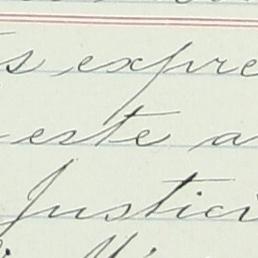 s expre
este a
Justici